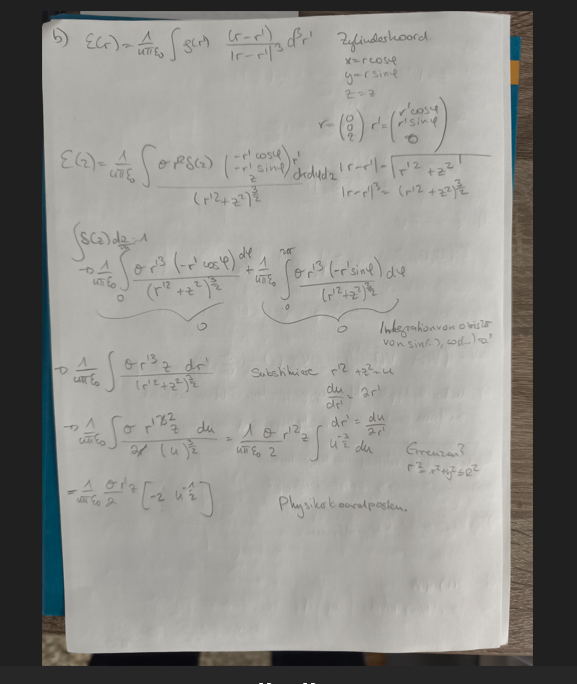 b) E(r) = 1/4πε₀ ∫ ρ(r') (r-r')/|r-r'|³ d³r' Zylinderkoord.
x = r cosφ
y = r sinφ
z = z
r = (0 0 z) r' = (r' cosφ r' sinφ 0)
E(z) = 1/4πε₀ ∫ σ r² δ(z) (-r' cosφ -r' sinφ z) r' / (r'² + z²)^3/2 dr dφ dz |r-r'| = √(r'² + z²)
|r-r'|³ = (r'² + z²)^3/2
∫ δ(z) dz = 1
→ 1/4πε₀ ∫₀ σ r'³ (-r' cosφ) dφ / (r'² + z²)^3/2 + 1/4πε₀ ∫₀^2π σ r'³ (-r' sinφ) dφ / (r'² + z²)^3/2
0 0 Integration von 0 bis 2π
von sin(-), cos(-) = 0
→ 1/4πε₀ ∫ σ r'³ z dr' / (r'² + z²)^3/2 Substituiere r'² + z² = u
du/dr' = 2r'
dr' = du/2r'
→ 1/4πε₀ ∫ σ r'² z du / 2 (u)^3/2 = 1/4πε₀ σ/2 r'² z ∫ u^-3/2 du Grenzen?
r² = x² + y² ≤ R²
= 1/4πε₀ σ/2 r'² z [-2 u^-1/2] Physikerboard posten.